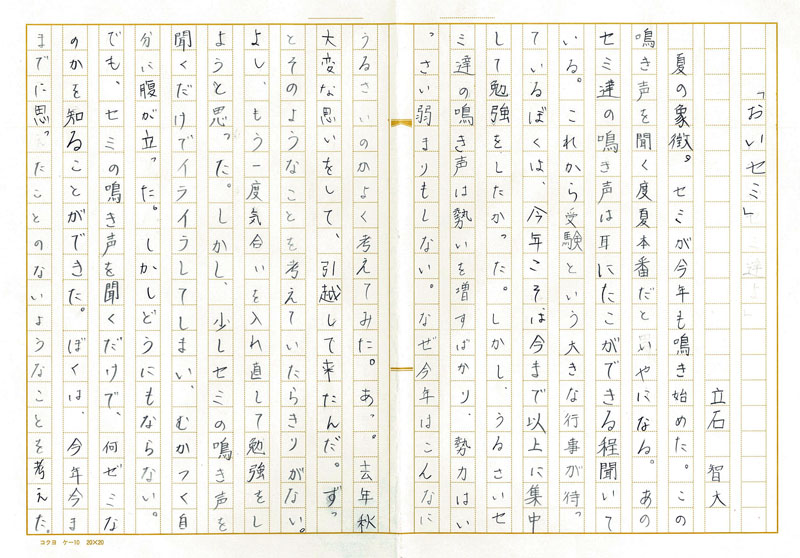 「おいセミ」
立石 智大
夏の象徴。セミが今年も鳴き始めた。この
鳴き声を聞く度夏本番だといやになる。あの
セミ達の鳴き声は耳にたこができる程聞いて
いる。これから受験という大きな行事が待っ
ているぼくは、今年こそは今まで以上に集中
して勉強をしたかった。しかし、うるさいセ
ミ達の鳴き声は勢いを増すばかり、勢力はい
っさい弱まりもしない。なぜ今年はこんなに
うるさいのかよく考えてみた。あっ。去年秋
大変な思いをして、引越して来たんだ。ずっ
とそのようなことを考えていたらきりがない。
よし、もう一度気合いを入れ直して勉強をし
ようと思った。しかし、少しセミの鳴き声を
聞くだけでイライラしてしまい、むかつく自
分に腹が立った。しかしどうにもならない。
でも、セミの鳴き声を聞くだけで、何ぜミな
のかを知ることができた。ぼくは、今年今ま
でに思ったことのないようなことを考えた。
コクヨ ケー10 20×20